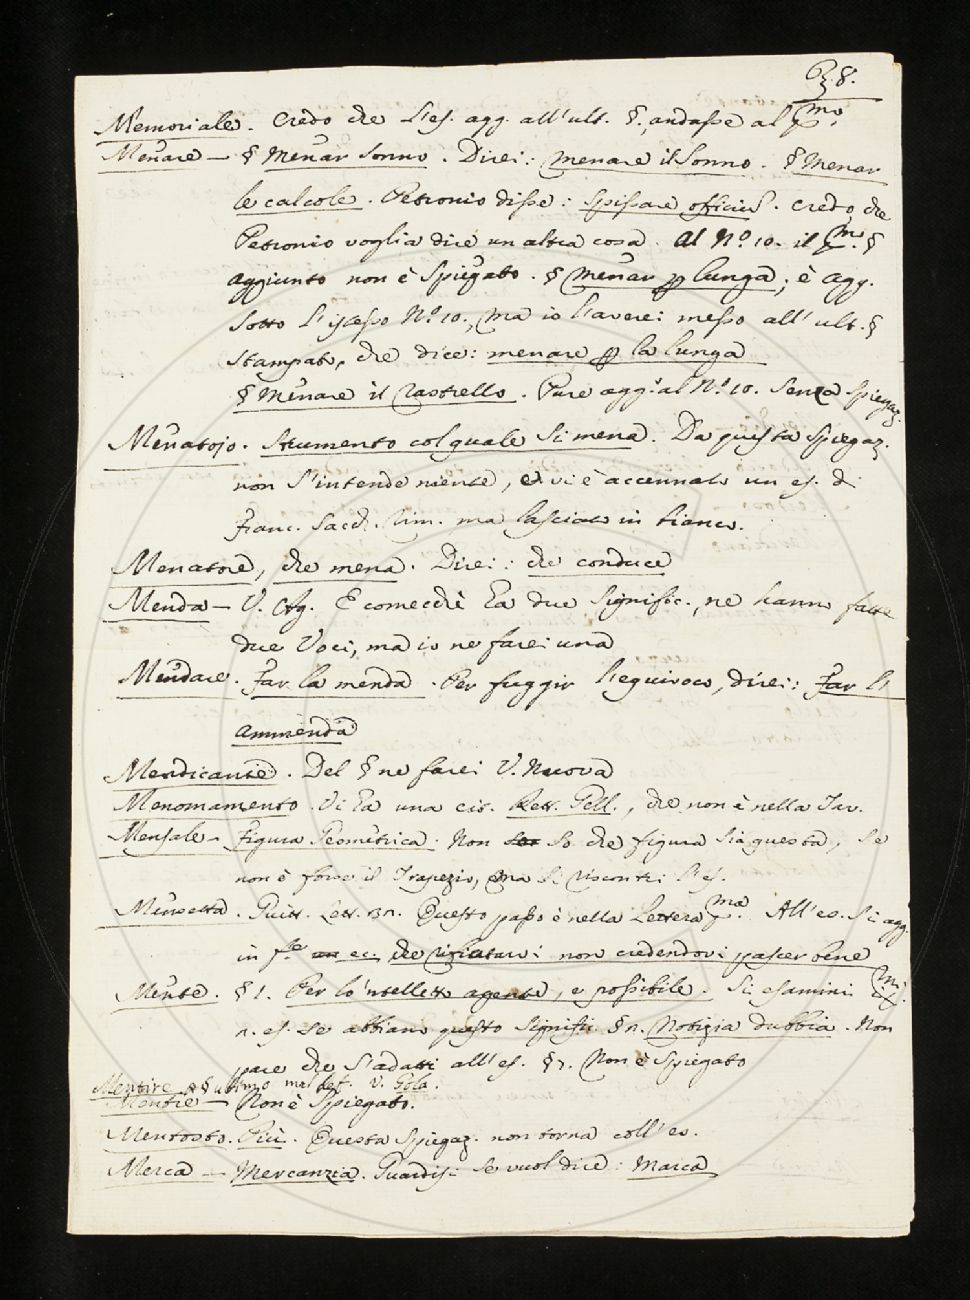 38.
Memoriale. Credo che l'es. agg. all'ult. §. andasse al pmo.
Menare — § Menar sonno. Direi: menare il sonno. § Menar
le calcole. Petronio disse: spissare officium. Credo che
Petronio voglia dire un altra cosa. Al N.o 10. il pmo. §
aggiunto non è spiegato. § menar p lunga; è agg.
sotto l'istesso N.o 10., ma io l'averei messo all'ult. §
stampato, che dice: menare p la lunga
§ Menare il rastrello. Pure agg.o al N.o 10. senza spiegaz.
Menatojo. Strumento col quale si mena. Da questa spiegaz.
non s'intende niente, e vi è accennato un es. di
Franc. Sacch. rim. ma lasciato in bianco.
Menatore, che mena. Direi: che conduce
Menda — V. Agg. E comecchè ha due signific., ne hanno fatte
due Voci, ma io ne farei una
Mendare. Far la menda. Per fuggir l'equivoco, direi: Far l'
ammenda
Mendicante. Del § ne farei V. Nuova
Menomamento. Vi ha una cit. Rett. Tull., che non è nella Tav.
Mensale — Figura Geometrica. Non so che figura sia questa, se
non è forse il Trapezio, ma si riscontri l'es.
Menzetta. Guitt. Lett. Questo passo è nella Lettera pma. All'es. si agg.
in f.e ec. che rifiutarvi non credendovi pascer bene
Mente. § 1. Per lo 'ntelletto agente, e possibile. Si esamini
n. es. se abbiano questo signific. § n. Notizia dubbia. Non
pare che s'adatti all'es. § 7. Non è spiegato
Mentire § ultimo mal def. V. Gola.
— Non è spiegato.
Mentosto. Più. Questa spiegaz. non torna coll'es.
Merca — Mercanzia. Guardisi se vuol dire: Marca